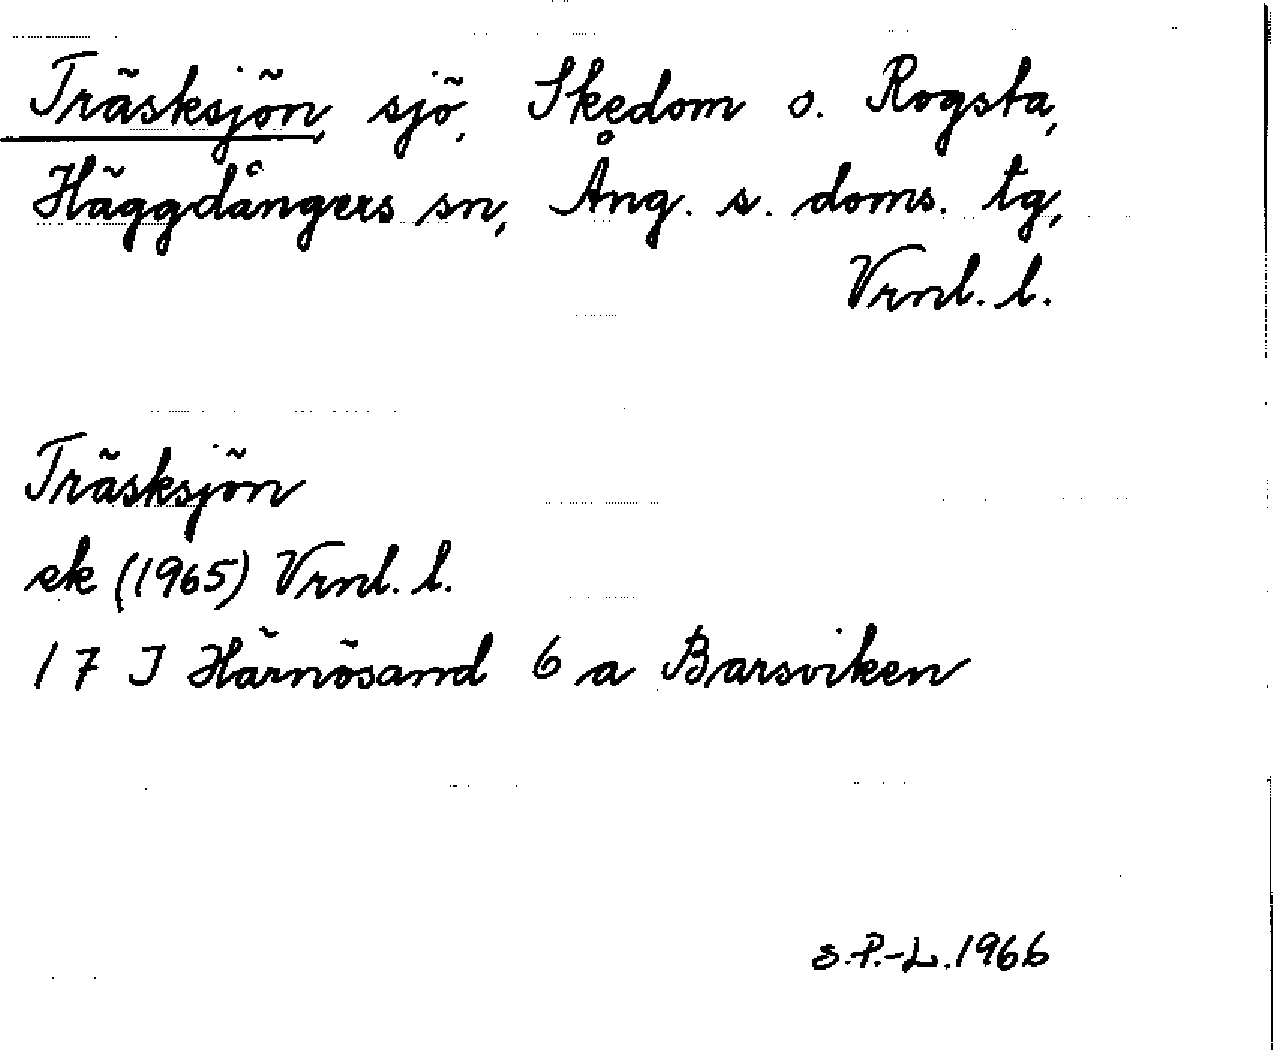 Träsksjön, sjö, Skedom o. Rogsta,
Häggdångers sn, Ång. s. doms. tg,
Vrnl. l.
Träsksjön
ek (1965) Vrnl. l.
17 I Härnösand 6 a Barsviken
S.P.-L. 1966